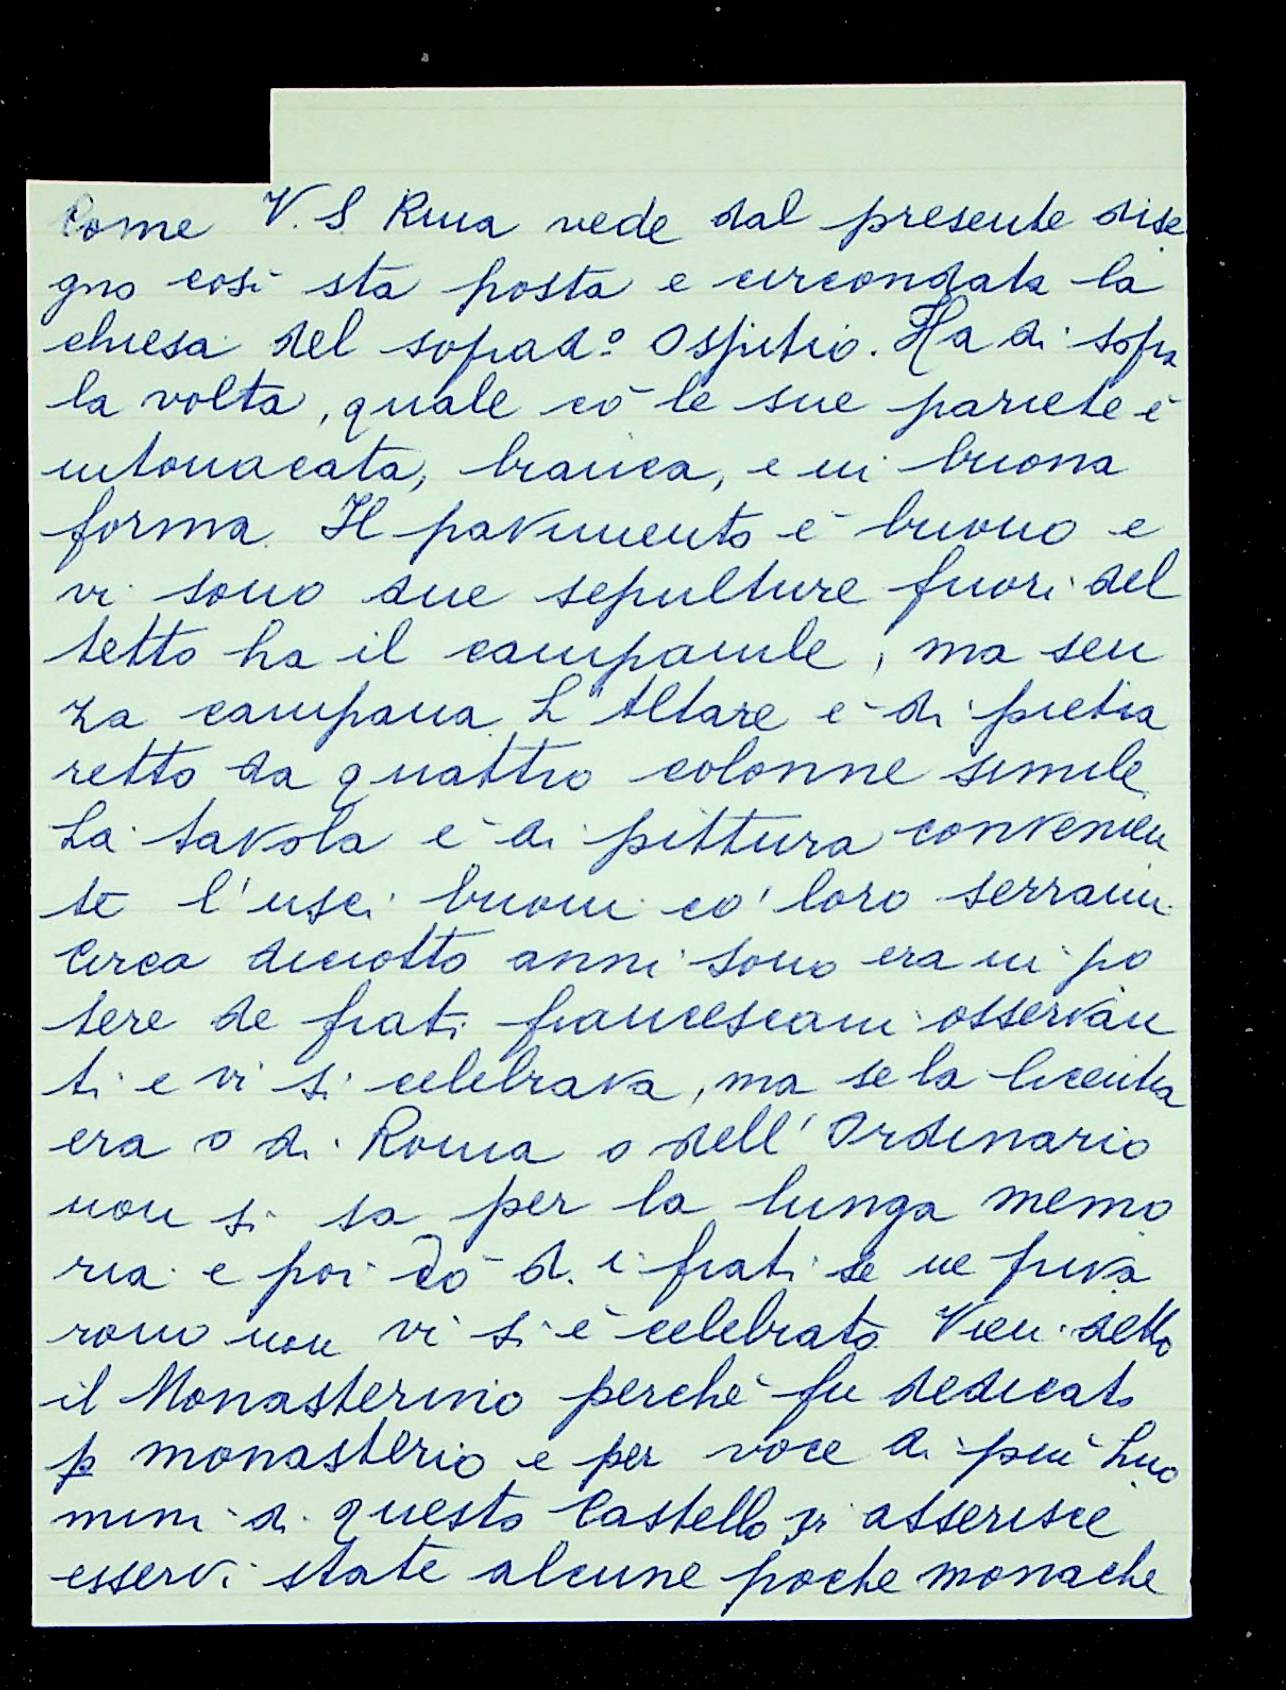 Come V. S. Rma vede dal presente dise
gno così sta posta e circondata la
chiesa del soprad.º Ospitio. Ha di sopra
la volta, quale cō le sue pariete è
intonacata, bianca, e in buona
forma. Il pavimento è buono e
vi sono due sepulture fuori del
tetto ha il campanile, ma sen
za campana. L'Altare è di pietra
retto da quattro colonne simile.
La tavola è di pittura convenien
te l'usci buoni co' loro serrami.
Circa diciotto anni sono era in po
tere de frati francescani osservan
ti e vi si celebrava, ma se la licentia
era o di Roma o dell'Ordinario
non si sa per la lunga memo
ria e poi d. i frati se ne priva
rono non vi si è celebrato. Vien detto
il Monasterino perchè fu dedicato
p monasterio e per voce di più huo
mini di questo Castello si asserisce
esservi state alcune poche monache